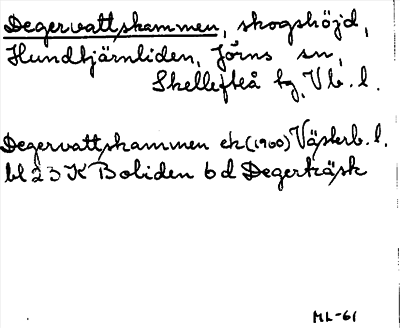 Degervattskammen, skogshöjd,
Hundtjärnliden, Jörns sn,
Skellefteå tg, Vb. l.
Degervattskammen ek (1900) Västerb. l.
bl 23 K Boliden 6 d Degerträsk
ML-61